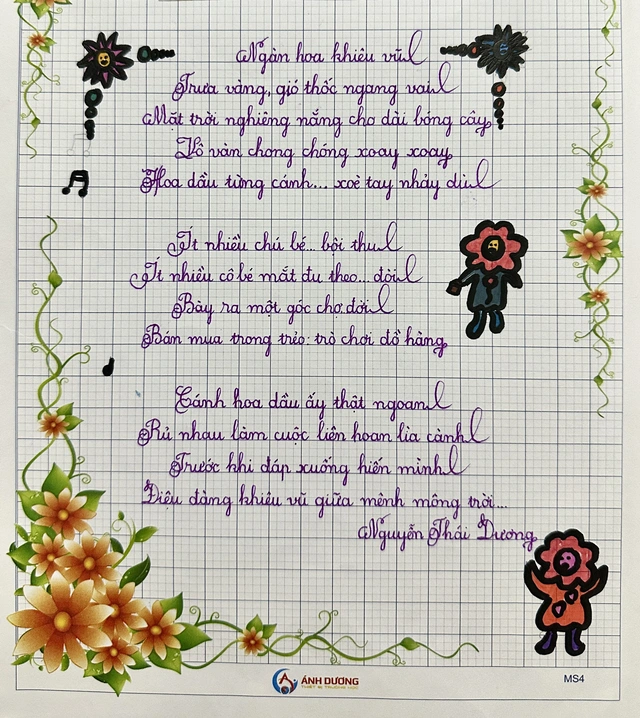 Ngàn hoa khiêu vũ
Trưa vàng, gió thốc ngang vai
Mặt trời nghiêng nắng cho dài bóng cây
Vô vàn chong chóng xoay xoay
Hoa dầu từng cánh... xoè tay nhảy dù
Ít nhiều chú bé... bội thu
Ít nhiều cô bé mắt đu theo... dòi
Bày ra một góc chợ đời
Bán mua trong trẻo: trò chơi đồ hàng
Cánh hoa dầu ấy thật ngoan
Rủ nhau làm cuộc liên hoan lìa cành
Trước khi đáp xuống hiến mình
Diệu dàng khiêu vũ giữa mênh mông trời...
Nguyễn Thái Dương
ÁNH DƯƠNG
THIẾT BỊ TRƯỜNG HỌC
MS4